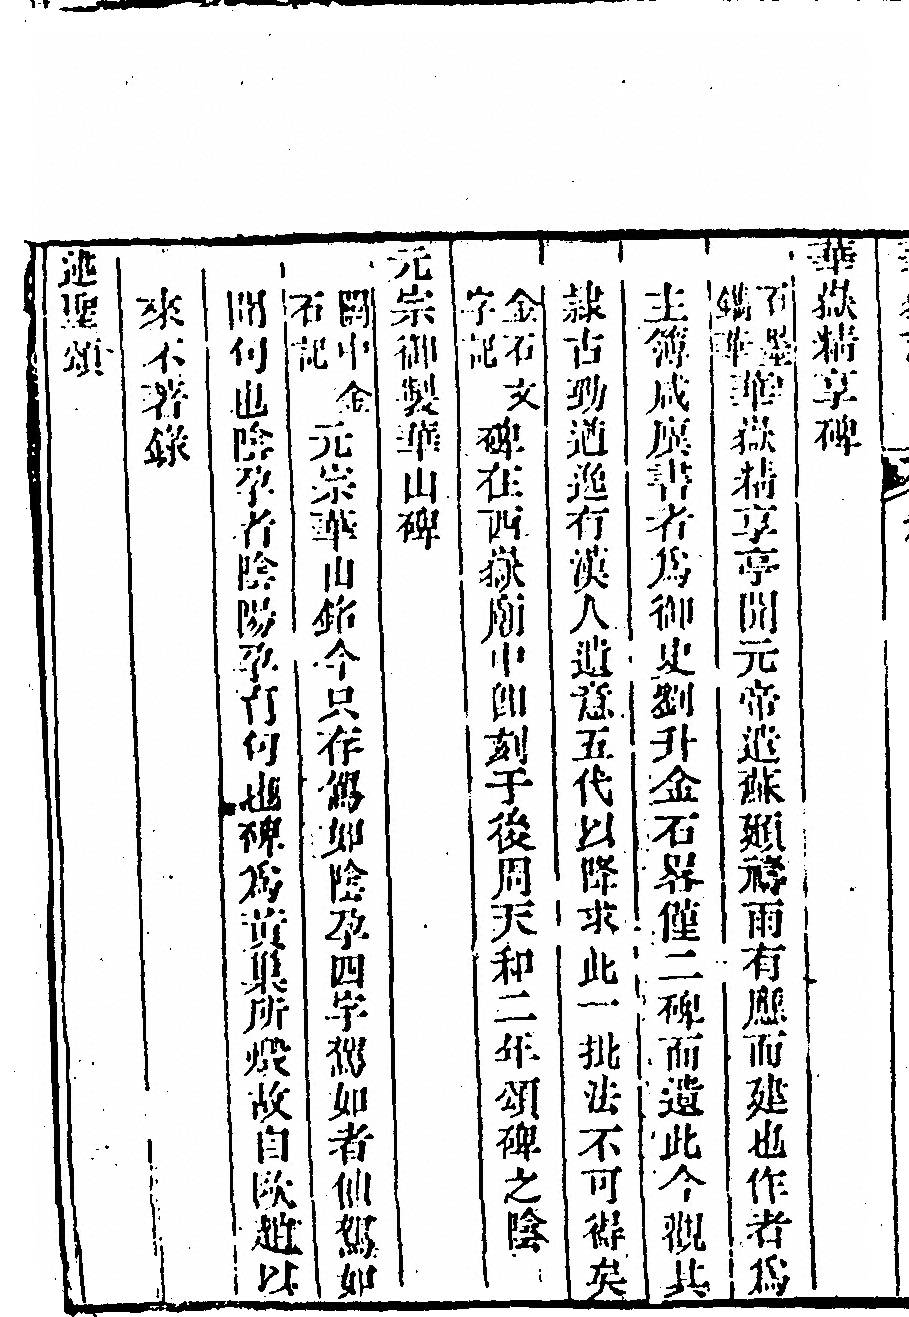 華嶽精享碑
石墨鐫華華嶽精享亭開元帝造蘇頲禱雨有應而建也作者爲
主簿咸廙書者爲御史劉升金石畧僅二碑而遺此今觀其
隷古勁遒逸有漢人遺意五代以降求此一批法不可得矣
金石文字記碑在西嶽廟中卽刻于後周天和二年頌碑之陰
元宗御製華山碑
關中金石記元宗華山銘今只存駕如陰孕四字駕如者仙駕如
問何也陰孕者陰陽孕育何也碑爲黃巢所燬故自歐趙以
來不著錄
述聖頌